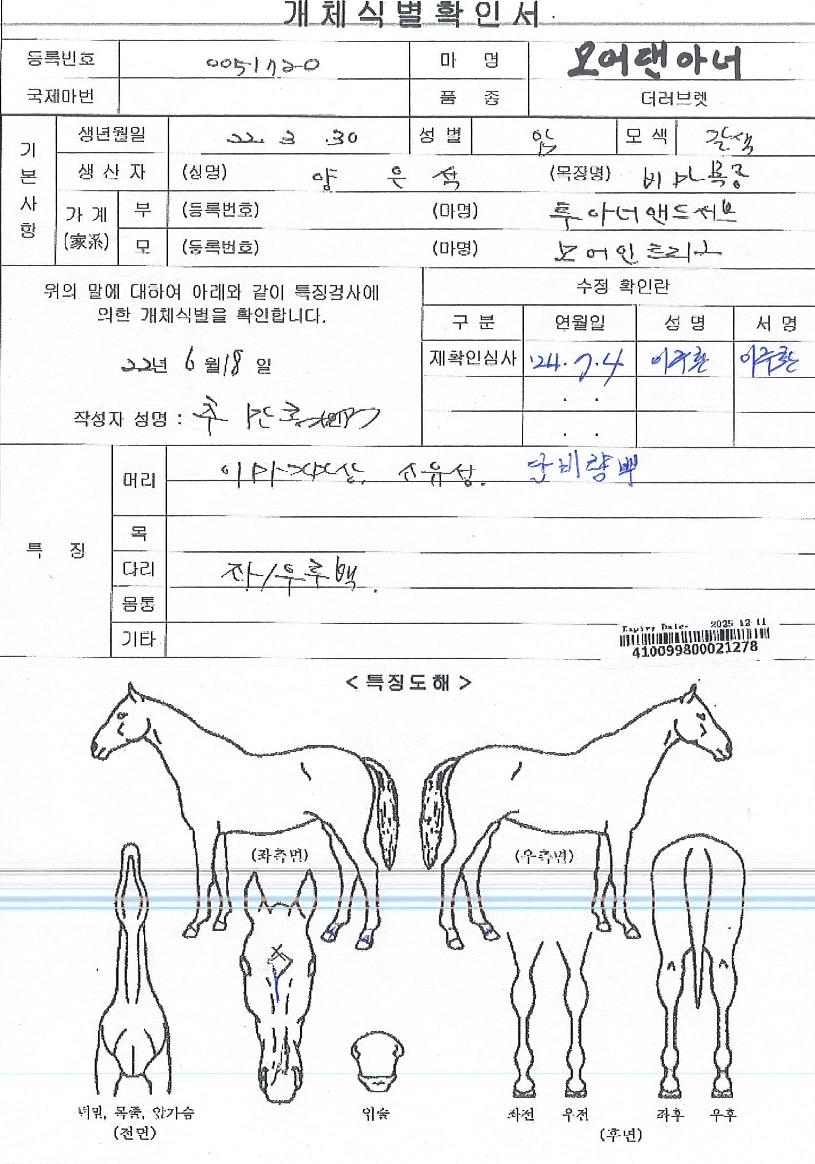 개체식별확인서
등록번호 0051720 마 명 모어댄아너
국제마번 품 종 더러브렛
기본사항
생년월일 22. 3 .30 성 별 암 모 색 갈색
생 산 자 (성명) 양 은 석 (목장명)
가 계 (家系) 부 (등록번호) (마명) 투아너앤드서브
모 (등록번호) (마명) 모어인트리구
위의 말에 대하여 아래와 같이 특징검사에
의한 개체식별을 확인합니다.
22년 6월 18일
작성자 성명 :
수정 확인란
구 분 연월일 성 명 서 명
재확인심사 '24. 7. 4 이주환 이주환
. .
. .
특 징
머리
목
다리 좌/우후백.
몸통
기타
Expiry Date: 2025 12 11
410099800021278
< 특징도해 >
(좌측면) (우측면)
턱밑, 목줄, 앞가슴
(전면)
입술
좌전 우전 좌후 우후
(후면)